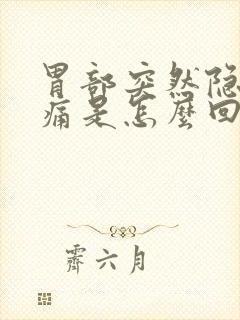 胃部突然隐
痛是怎麼回
霽六月